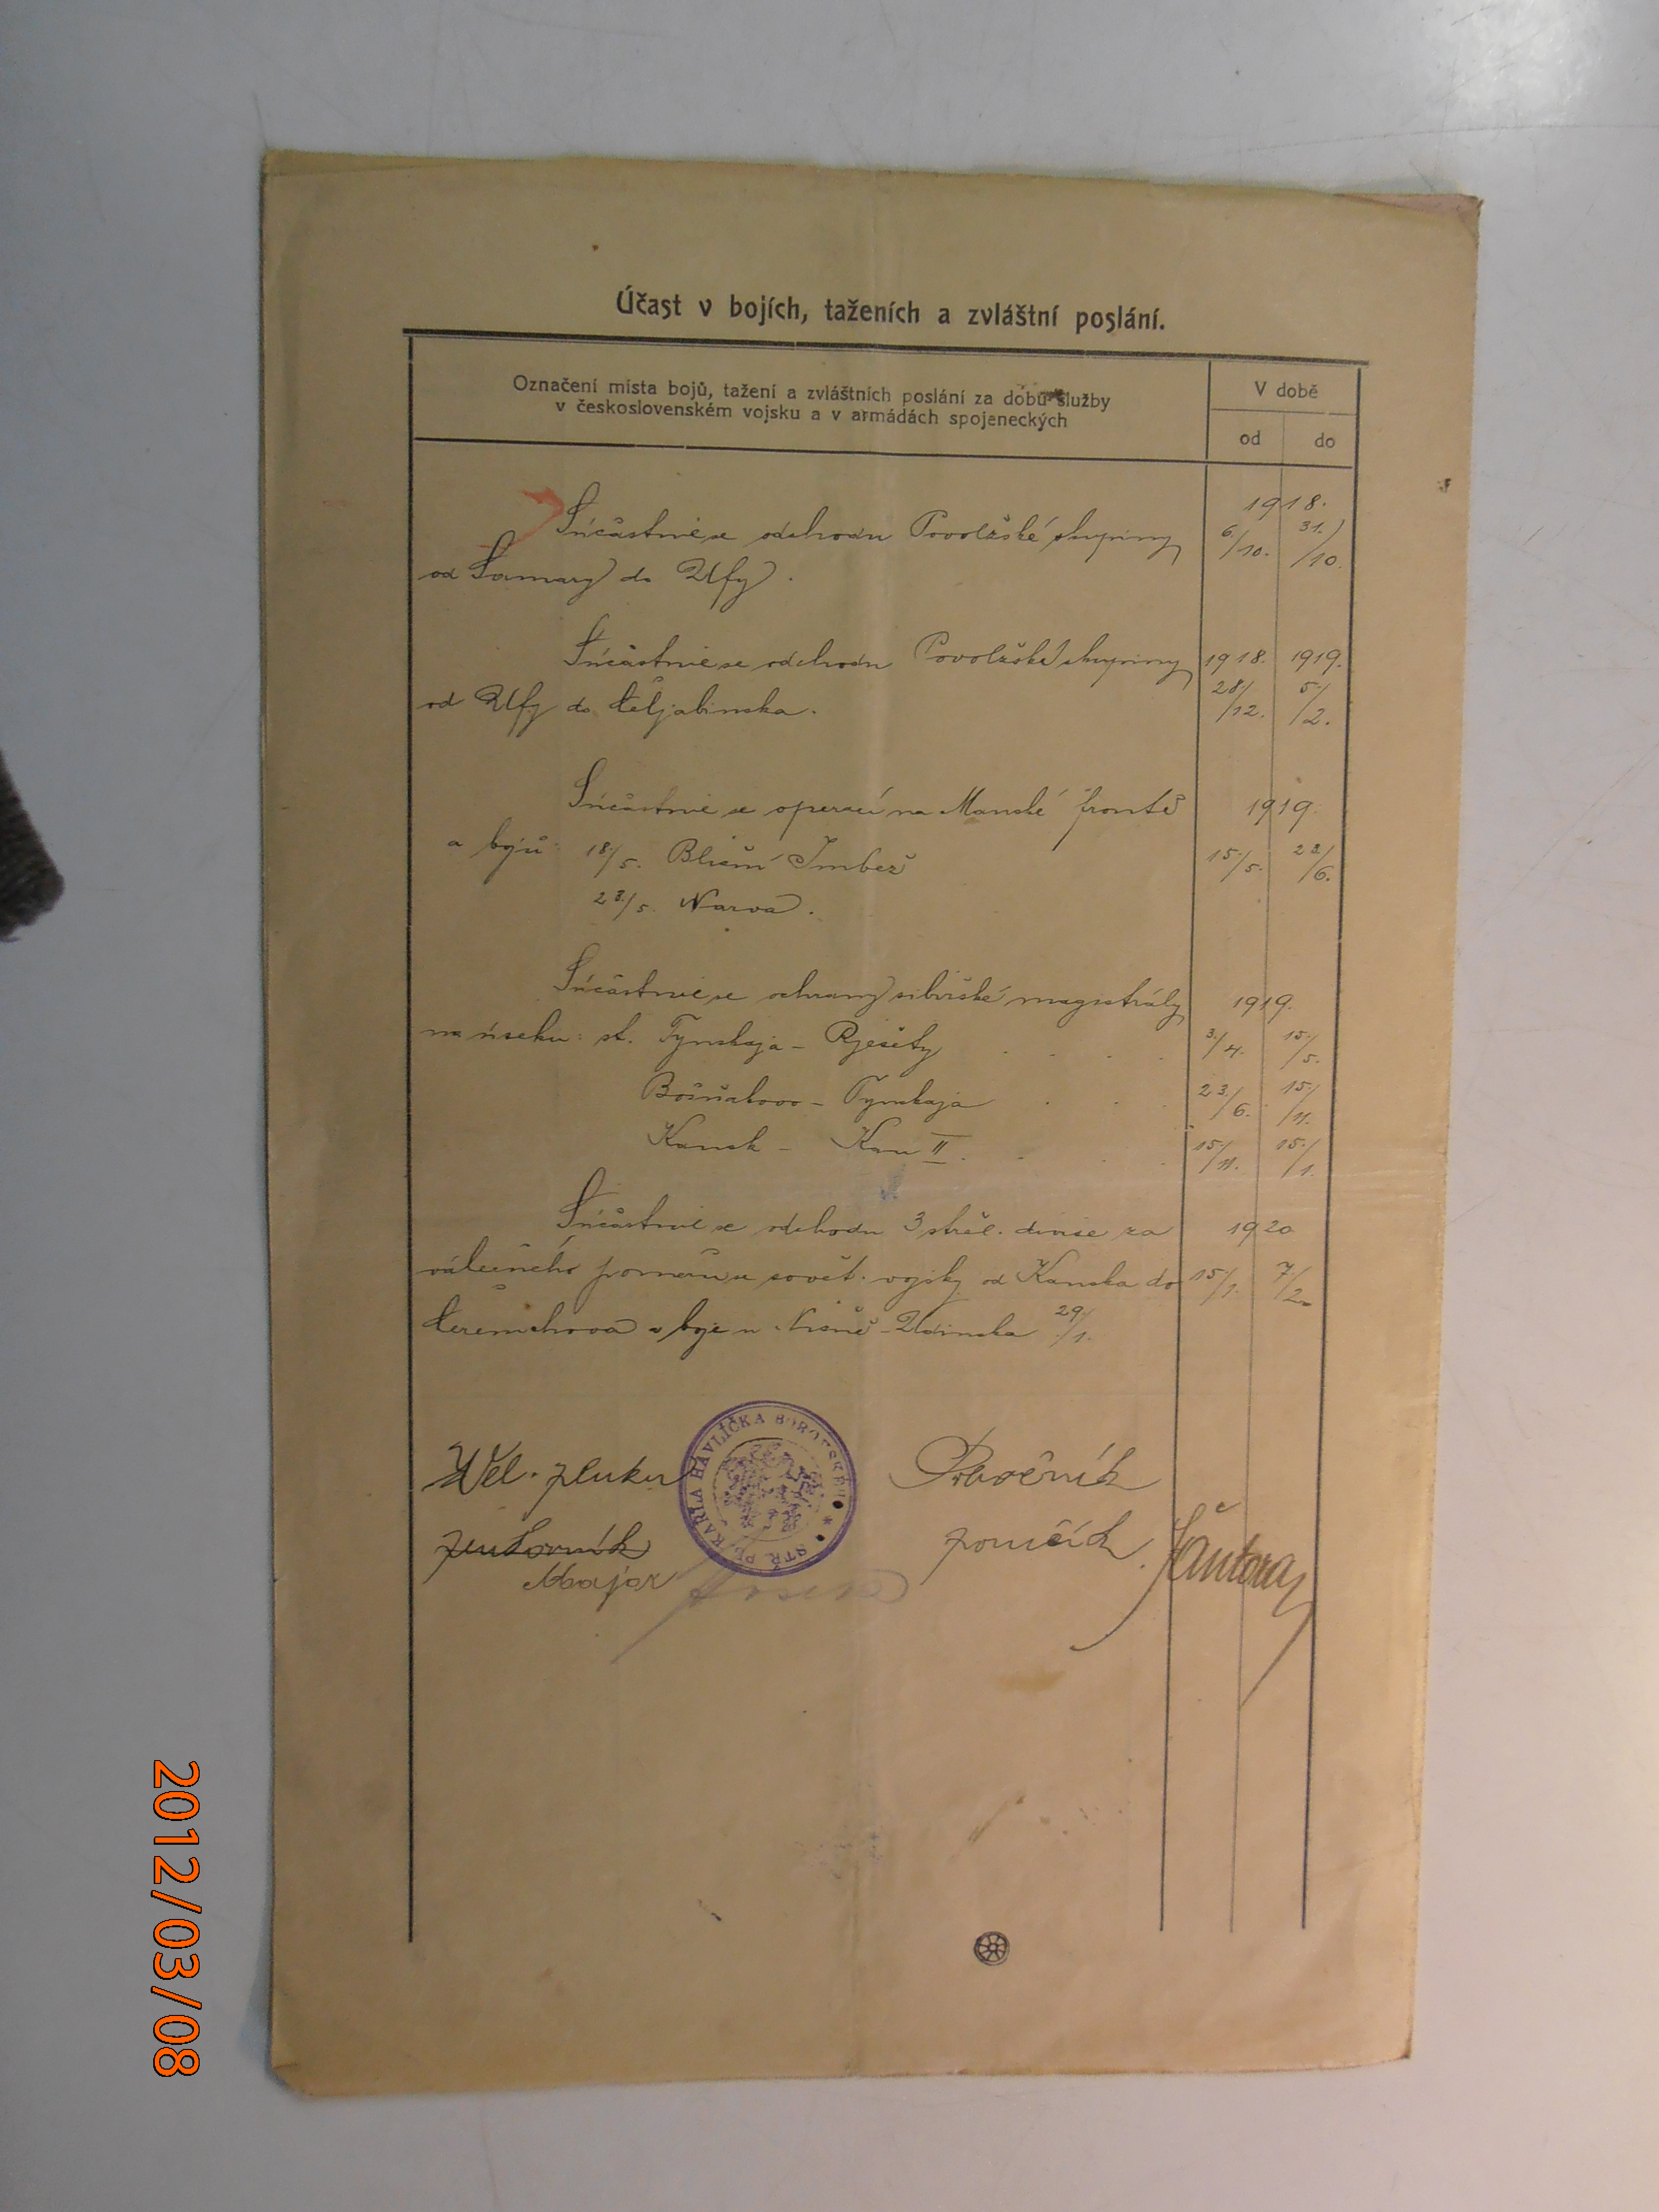 Účast v bojích, taženích a zvláštní poslání.
Označení místa bojů, tažení a zvláštních poslání za dobu služby
v československém vojsku a v armádách spojeneckých
V době
od do
Súčastnil se odchodu Povolžské skupiny
od Samary do Ufy.
1918.
6/10. 31./10.
Súčastnil se odchodu Povolžské skupiny
od Ufy do Čeljabinska.
1918. 1919.
28/12. 5/2.
Súčastnil se operací na Manské frontě
a bojů: 18/5. Bližní Imbež
23/5. Narva.
1919.
15/5. 23/6.
Súčastnil se ochrany sibiřské magistrály
na úseku: st. Tynskaja - Rješety
Bošňakovo - Tynskaja
Kansk - Kan II.
1919.
3/4. 15/5.
23/6. 15/11.
15/11. 15/1.
Súčastnil se odchodu 3 střel. divise za
válečného poměru se sovět. vojsky od Kanska do
Čeremchova a boje u Nižně-Udinska 29/1.
1920
15/1. 7/2.
Vel. pluku
plukovník
Major
STŘ. PL. KARLA HAVLÍČKA BOROVSKÉHO
Pobočník
poručík Šantora
2012/03/08